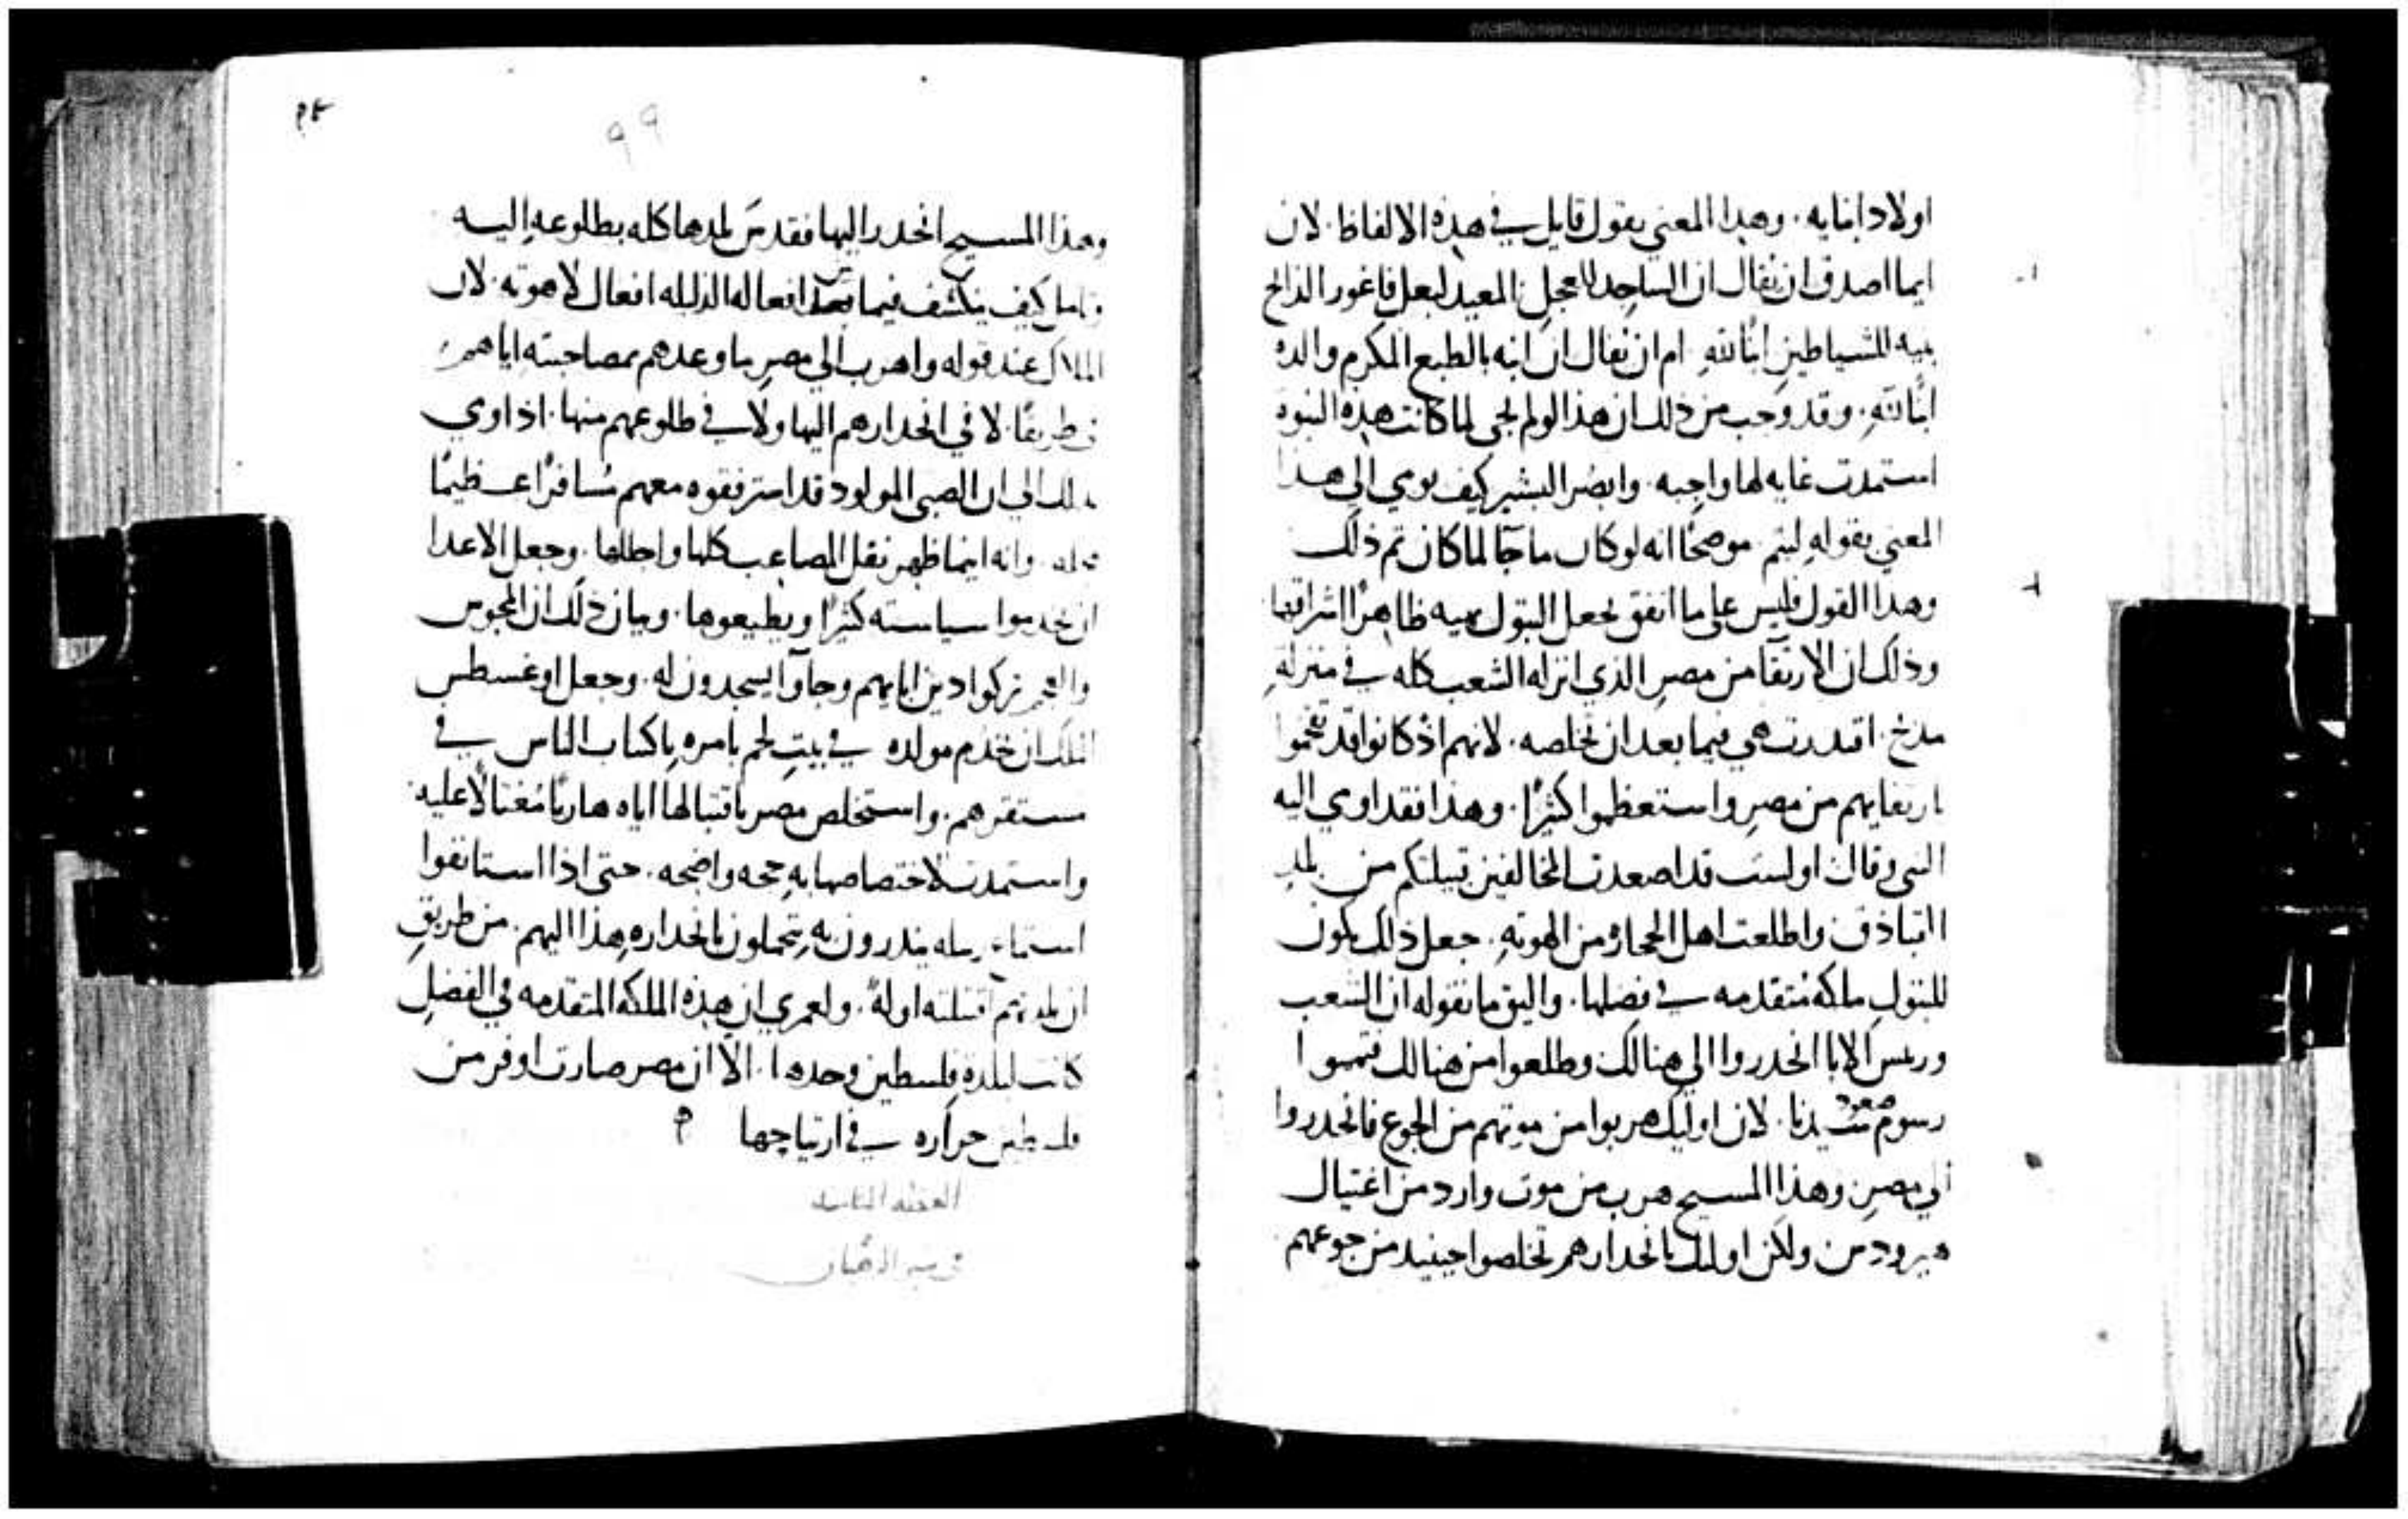 اولاد ابنايه. وهذا المعني يقول قايل في هذه الالفاظ. لان
ايما اصدق ان نقال ان الساجد للعجل المعيد لبعل فاغور الذابح
بنيه للشياطين ابنًا لله. ام ان نقال ان ابنه بالطبع المكرم والده
ابنًا لله. وقد وجب من ذلك ان هذا لو لم يجي لما كانت هذه النبوه
استمدت غايه لها واجبه. وابصر البشير كيف يومي الي هذا
المعني بقوله ليتم. موضحًا انه لو كان ما جا لما كان تم ذلك
وهذا القول فليس علي ما اتفق يجعل البتول بهيه ظاهرًا اشراقها
وذلك ان الارتقا من مصر الذي انزله الشعب كله في منزلة
مدح. اقتدرت هي فيما بعد ان تخلصه. لانهم اذ كانوا قد تفخموا
بارتقايهم من مصر واستعظموا كثيرًا. وهذا فقد اوي اليه
النبي وقال اوليست قد اصعدت المخالفين قبيلتكم من بلد
القباذق واطلعت اهل الحجاره من الهوته. جعل ذلك يكون
للبتول ملكه متقدمه في فضلها. واليق ما نقوله ان الشعب
وريس الابا انحدروا الي هنالك وطلعوا من هنالك فتمموا
رسوم صعود سيدنا. لان اوليك هربوا من موتهم من الجوع فانحدروا
الي مصر. وهذا المسيح هرب من موت وارد من اغتيال
هيرودس. ولكن اوليك بانحدارهم تخلصوا حينيد من جوعهم
٩٩
وهذا المسيح انحدر اليها فقدس بلدها كله بطلوعه اليه
وتامل كيف ينكشف فيما بين افعاله الذليله افعال لاهوته. لان
الملاك عند قوله واهرب الي مصر ما وعدهم بمصاحبته اياهم
في طريقًا. لا في انحدارهم اليها ولا في طلوعهم منها. اذ اوي
بذلك الي ان الصبي المولود قد استرفقوه معهم مسافرًا عظيمًا
وانه ايما ظهر نقل المصاعب كلها وابطلها. وجعل الاعدا
ان يخدموا سياسته كثيرًا ويطيعوها. وبيان ذلك ان المجوس
والعجم تركوا دين ابايهم وجاوا يسجدون له. وجعل اوغسطس
الملك ان خدم مولده في بيت لحم بامره باكتاب الناس في
مستقرهم. واستخلص مصر باقتبالها اياه هاربًا مغتالًا عليه
واستمدت لاختصاصها به حجه واضحه. حتي اذا استانفوا
استماع رسله ينذرون به يتجملون بانحداره هذا اليهم. من طريق
ان بلدتهم اقتبلته اوله. ولعمري ان هذه الملكه المتقدمه في الفضل
كانت لبلدة فلسطين وحدها. الا ان مصر صارت اوفر من
فلسطين حراره في ارتياحها
العظه التاسعه